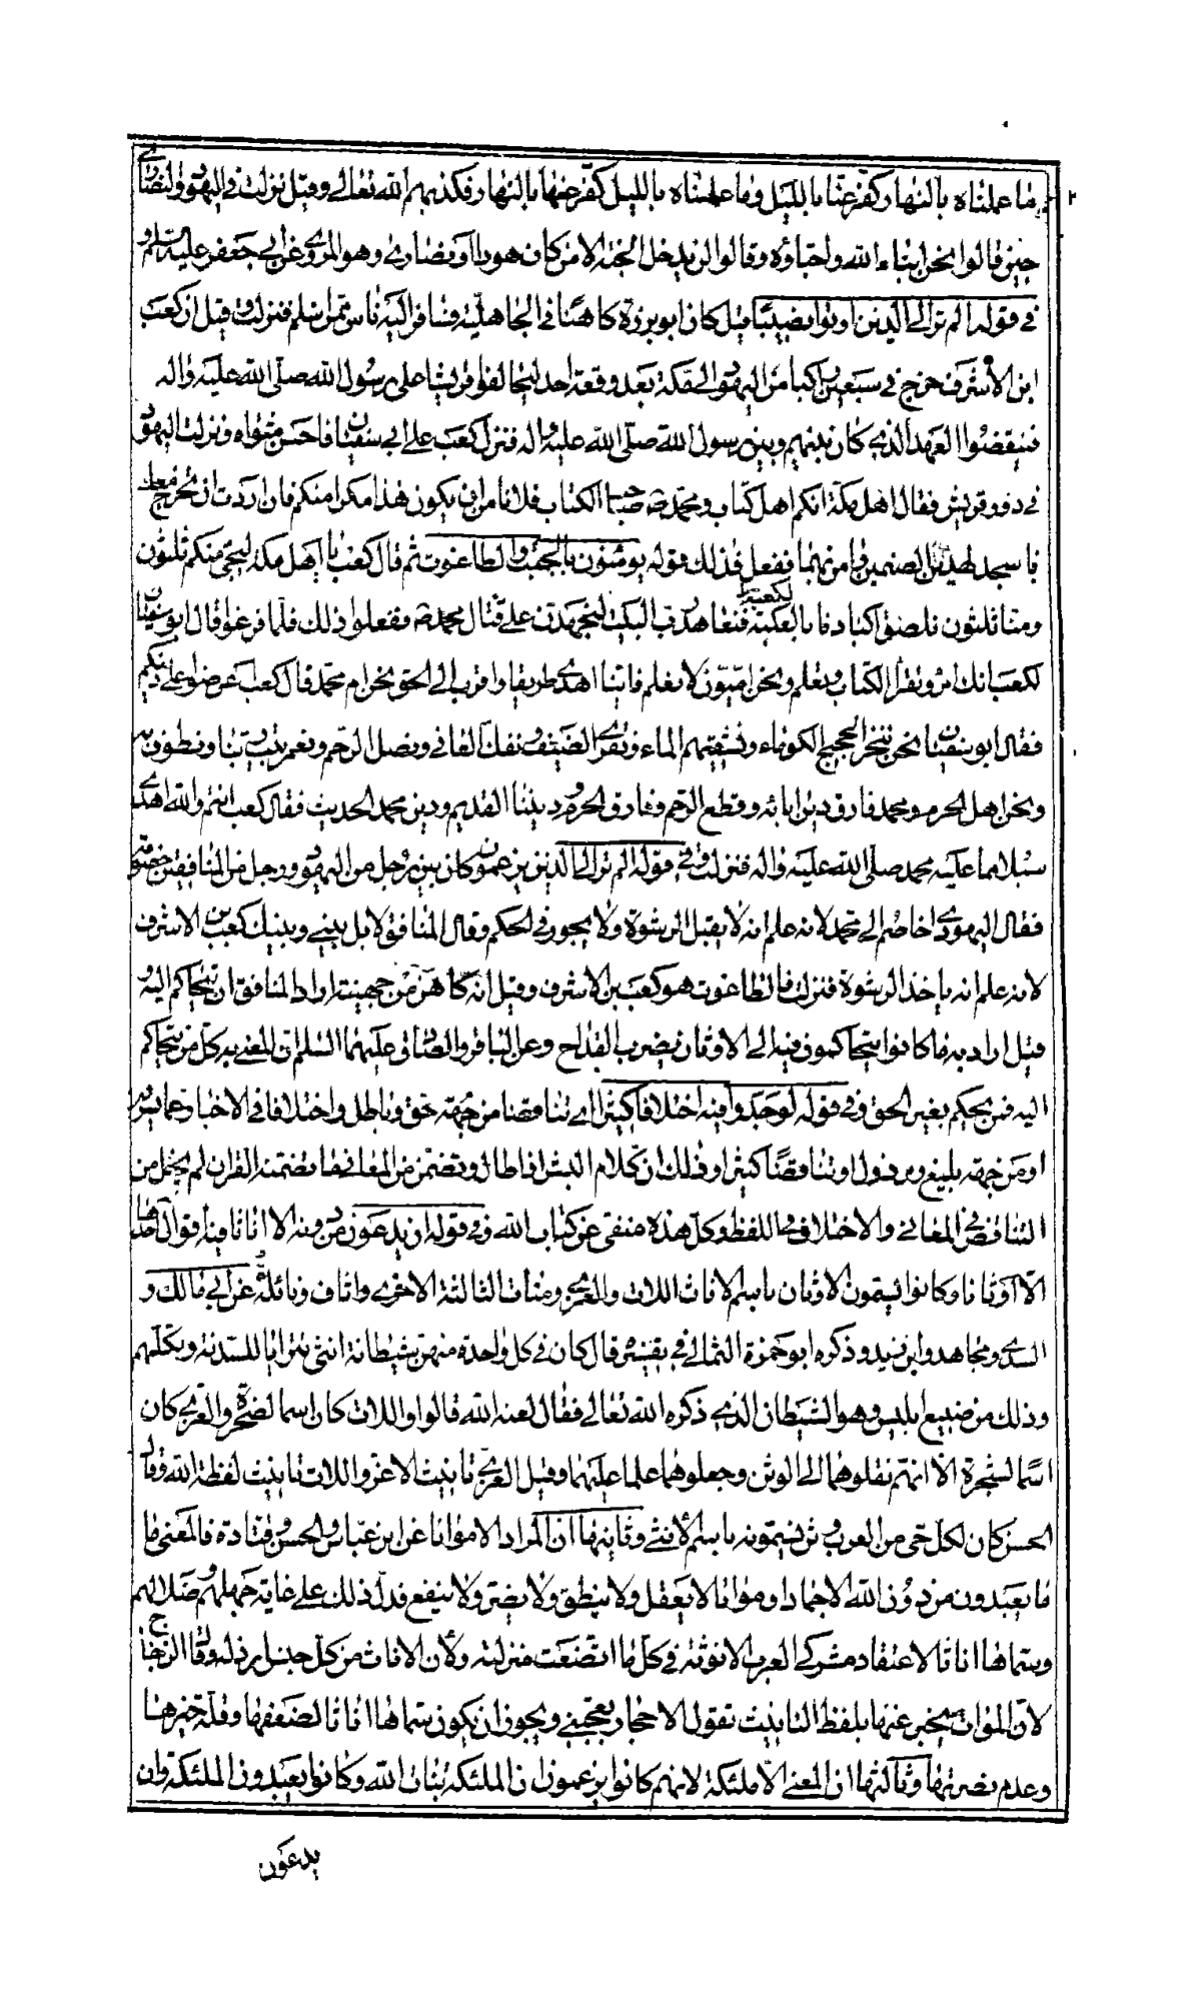 ما عملناه بالنهار كفّر عنّا بالليل وما عملناه بالليل كفّر عنها بالنهار فكذبهم الله تعالى وقيل نزلت فى اليهود والنصارى
حين قالوا نحن ابناء الله واحبّاؤه وقالوا لن يدخل الجنّة الا من كان هودا او نصارى وهو المروى عن ابى جعفر عليه السلم و
فى قوله الم تر الى الّذين اوتوا نصيبًا قيل كان ابو برزة كاهنًا فى الجاهليّة فتنافر اليه ناس ممّن اسلم فنزلت وقيل ان كعب
ابن الأشرف خرج فى سبعين راكبا من اليهود الى مكّة بعد وقعة احد ليحالفوا قريشا على رسول الله صلّى الله عليه واله
فينقضوا العهد الّذى كان بينهم وبين رسول الله صلّى الله عليه واله فنزل كعب على ابى سفيان فاحسن مثواه ونزلت اليهود
فى دور قريش فقال اهل مكّة انكم اهل كتاب ومحمّد ص صاحب الكتاب فلا نامن ان يكون هذا مكرا منكم فان اردت ان نخرج معك
فاسجد لهذين الصنمين وامن بهما ففعل فذلك قوله يؤمنون بالجبت والطاغوت ثم قال كعب يا اهل مكة ليجئ منكم ثلثون
ومنا ثلثون نلصق اكبادنا بالكعبة فنعاهد رب البيت لنجهدن على قتال محمد ص ففعلوا ذلك فلما فرغوا قال ابو سفيان
لكعب انك امرؤ تقرأ الكتاب وتعلم ونحن امّيّون لا نعلم فايّنا اهدى طريقا واقرب الى الحق نحن ام محمّد قال كعب اعرضوا علىّ دينكم
فقال ابو سفيان نحن ننحر للحجيج الكوماء ونسقيهم الماء ونقرى الضيف ونفك العانى ونصل الرحم ونعمر بيت ربنا ونطوف به
ونحن اهل الحرم ومحمد فارق دين ابائه وقطع الرحم وفارق الحرم وديننا القديم ودين محمد الحديث فقال كعب انتم والله اهدى
سبيلا مما عليه محمد صلّى الله عليه واله فنزلت وفى قوله الم تر الى الّذين يزعمون كان بين رجل من اليهود ورجل من المنافقين خصومة
فقال اليهودى اخاصم الى محمّد لانه علم انه لا يقبل الرشوة ولا يجور فى الحكم وقال المنافق لا بل بينى وبينك كعب بن الاشرف
لانه علم انه ياخذ الرشوة فنزلت فالطاغوت هو كعب بن الاشرف وقيل انه كاهن من جهينة اراد المنافق ان يتحاكم اليه و
قيل اراد به ما كانوا يتحاكمون فيه الى الاوثان بضرب القداح وعن الباقر والصّادق عليهما السّلم ان المعنى به كل من يتحاكم
اليه ممن يحكم بغير الحق وفى قوله لوجدوا فيه اختلافا كثيرا اى تناقضا من جهة حق وباطل واختلافا فى الاخبار عما يسرون
او من جهة بليغ ومرذول او تناقضًا كثيرا وذلك ان كلام البشر اذا طال وتضمن من المعانى ما تضمنه القران لم يخل من
التناقض فى المعانى والاختلاف فى اللفظ وكل هذه منفى عن كتاب الله وفى قوله ان يدعون من دونه الا اناثا فيه اقوال احدها
الّا اوثانا وكانوا يسمون الاوثان باسم الاناث اللات والعزى ومنات الثالثة الاخرى واساف ونائلة عن ابى مالك و
السدى ومجاهد وابن زيد وذكره ابو حمزة الثمالى فى تفسيره قال كان فى كل واحدة منهن شيطانة انثى تترايا للسدنة وتكلّمهم
وذلك من صنيع ابليس وهو الشيطان الذى ذكره الله تعالى فقال لعنه الله قالوا واللات كان اسما لصخرة والعزى كان
اسما لشجرة الا انهم نقلوهما الى الوثن وجعلوهما علما عليهما وقيل العزى تانيث الاعز واللات تانيث لفظة الله وقال
الحسن كان لكل حى من العرب وثن يسمّونه باسم الأنثى وثانيها ان المراد الا مواتا عن ابن عبّاس والحسن وقتادة فالمعنى ما
ما يعبدون من دون الله الا جمادا ومواتا لا يعقل ولا ينطق ولا يضر ولا ينفع فدلّ ذلك على غاية جهلهم وضلالهم
وسماها اناثا لاعتقاد مشركى العرب الانوثة فى كل ما اتّضعت منزلته ولأن الاناث من كل جنس ارذله وقال الزجاج
لأن الموات يخبر عنها بلفظ التانيث تقول الاحجار تعجبنى ويجوز ان يكون سماها اناثا لضعفها وقلة خيرها
وعدم نصرتها وثالثها ان المعنى الا ملئكة لانهم كانوا يزعمون ان الملئكة بنات الله وكانوا يعبدون الملئكة وان
يدعون